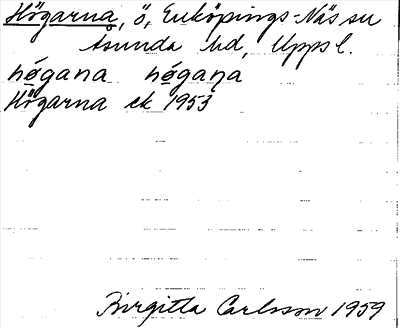 Högarna, ö, Enköpings-Näs sn
Åsunda hd, Uppsl.
hǿgana hǿgaṇa
Högarna ek 1953
Birgitta Carlsson 1959